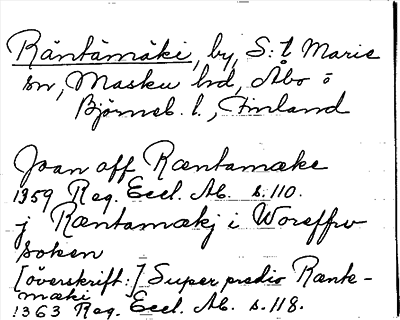 Räntämäki, by, S:t Marie
sn, Masku hd, Åbo o
Björneb. l., Finland
Joan aff Ræntamæke
1359 Reg. Eccl. Ab. s. 110.
j Ræntamækj i Woreffrv
soken
[överskrift:] Super predio Rænk-
mæki
1363 Reg. Eccl. Ab. s. 118.